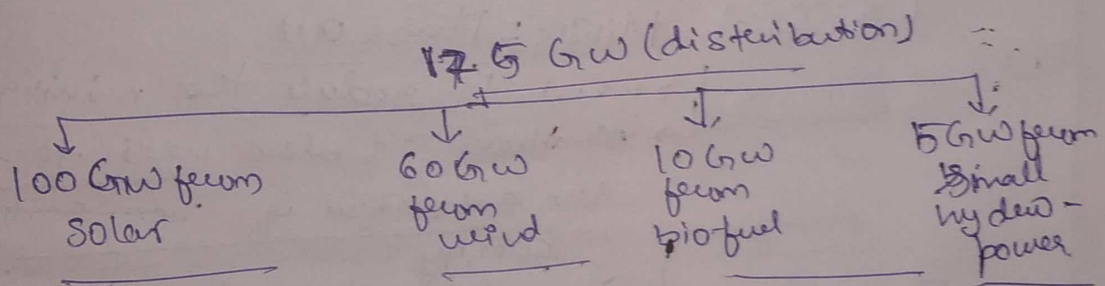 175 GW (distribution)
100 GW from
solar
60 GW
from
wind
10 GW
from
biofuel
5 GW from
small
hydro-
power